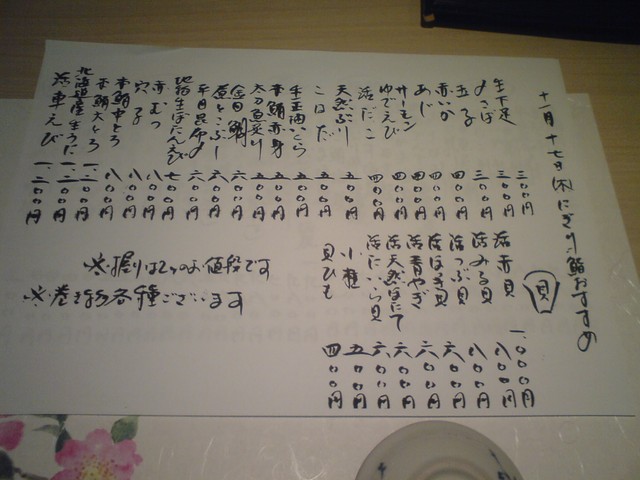 十一月十七日(木)にぎり鮨おすすめ
生下足 三〇〇円
〆さば 三〇〇円
赤いか 三〇〇円
玉子 四〇〇円
あじ 四〇〇円
サーモン 四〇〇円
ゆでえび 四〇〇円
活だこ 四〇〇円
天然ぶり 五〇〇円
こはだ 五〇〇円
いくら 五〇〇円
本鮪赤身 五〇〇円
太刀魚炙り 五〇〇円
金目鯛 六〇〇円
とこぶし 六〇〇円
平目昆布〆 六〇〇円
地物生ぼたんえび 七〇〇円
赤むつ 八〇〇円
穴子 八〇〇円
本鮪中とろ 八〇〇円
本鮪大とろ
北海道産生うに
活車えび
貝
活赤貝 一、〇〇〇円
活みる貝 八〇〇円
活つぶ貝 八〇〇円
活ほき貝 六〇〇円
活青やぎ 六〇〇円
活天然ほたて 六〇〇円
活たいら貝 六〇〇円
小柱 五〇〇円
貝ひも 四〇〇円
※握りは2ヶのお値段です
※巻き物各種ございます